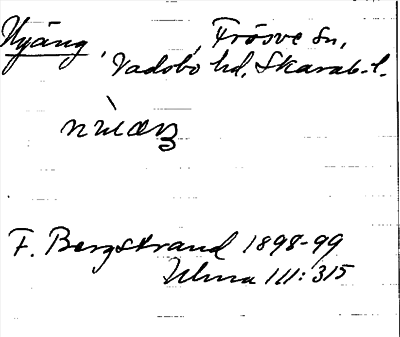 Nyäng, Frösve sn,
Vadsbo hd, Skarab. l.
F. Bergstrand 1898-99
Ulma 111:315